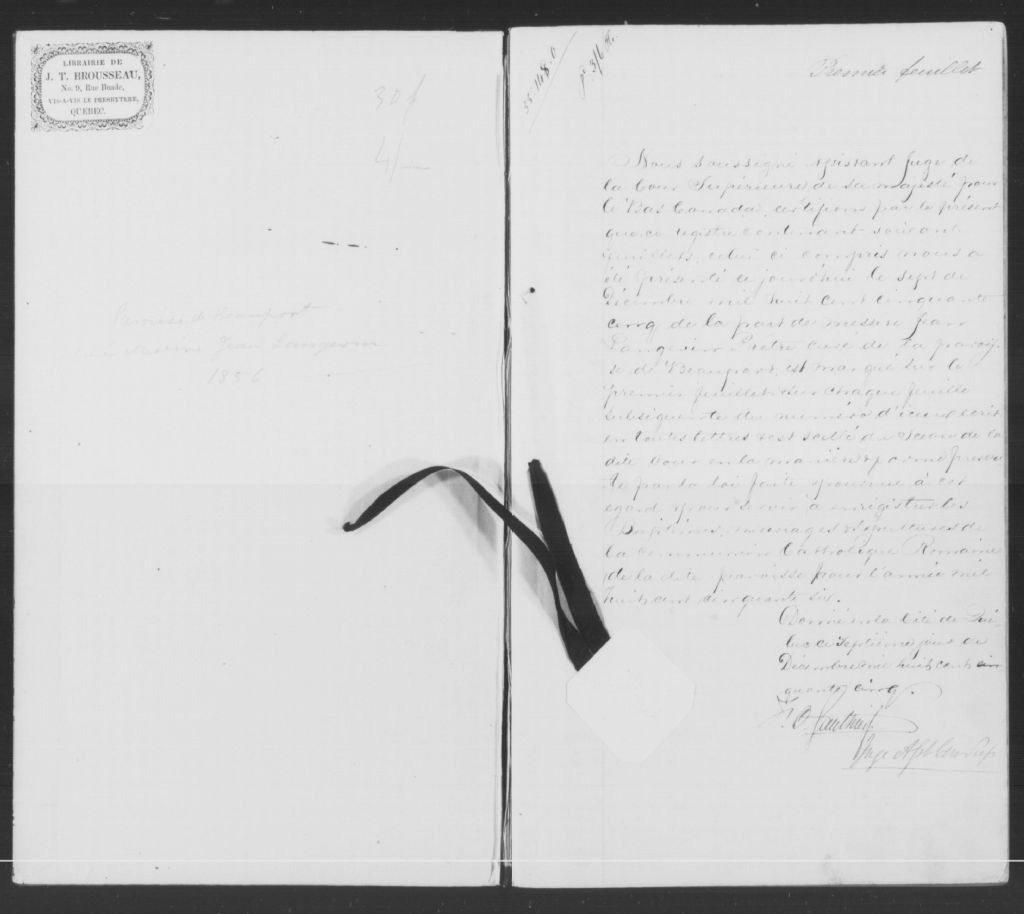 LIBRAIRIE DE
J. T. BROUSSEAU,
No. 9, Rue Buade,
VIS-A-VIS LE PRESBYTERE,
QUÉBEC.
4/-
Paroisse de Beauport
Jean Langevin
1856
Premier feuillet
Nous soussigné Assistant Juge de
la Cour Supérieure de sa majesté pour
le Bas Canada, certifions par la présent
que ce registre contenant soixante
feuillets, celui ci compris nous a
été présenté ce jourd'hui le sept de
Décembre mil huit cent cinquante
cinq de la part de messire Jean
Langevin Pretre curé de la parois
se de Beauport, est marqué sur le
premier feuillet & sur chaque feuille
subséquente du numéro d'iceux écrit
en toutes lettres & est scellé du Sceau de la
dite Cour en la manière & forme prescri
te par la loi faite & pourvue à cet
egard & pour servir à enrégistrer les
Baptêmes, mariages & sépultures de
la Communion Catholique Romaine
de la dite paroisse pour l'année mil
huit cent cinquante six.
Donné en la Cité de Qué-
bec ce Septième jour de
Décembre mil huit cent cin
quante cinq.
Juge Asst Cour Sup